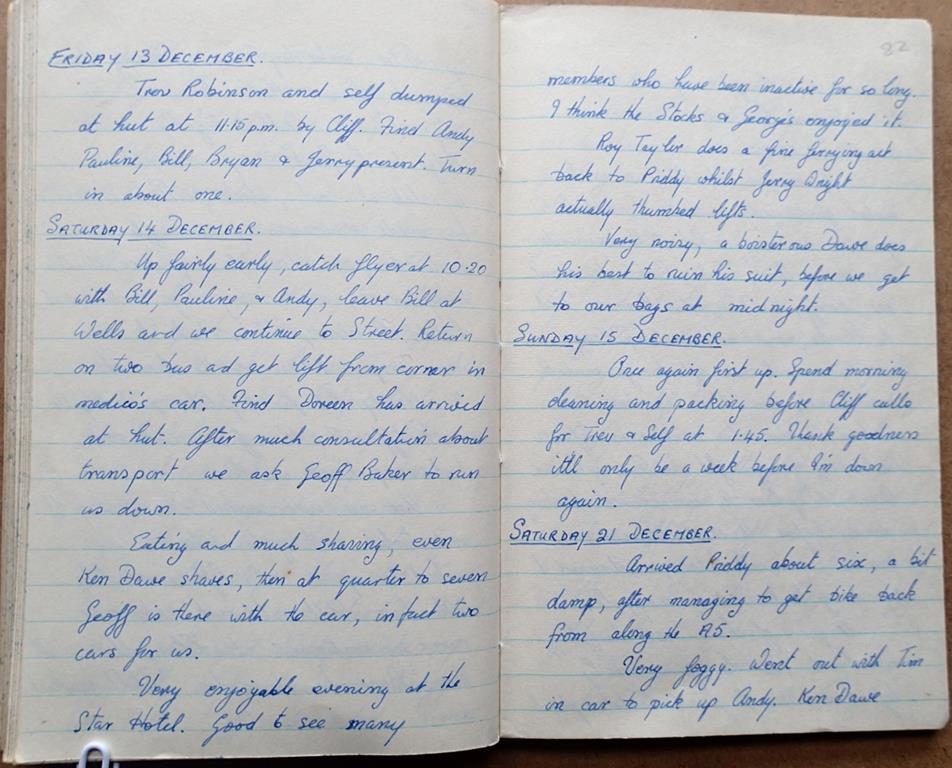 FRIDAY 13 DECEMBER.
Trev Robinson and self dumped
at hut at 11.15 p.m. by Cliff. Find Andy
Pauline, Bill, Bryan & Jerry present. Turn
in about one.
SATURDAY 14 DECEMBER.
Up fairly early, catch flyer at 10.20
with Bill, Pauline, & Andy, leave Bill at
Wells and we continue to Street. Return
on two bus ad get lift from corner in
medico's car. Find Doreen has arrived
at hut. After much consultation about
transport we ask Geoff Baker to run
us down.
Eating and much sharing, even
Ken Dawe shaves, then at quarter to seven
Geoff is there with the car, in fact two
cars for us.
Very enjoyable evening at the
Star Hotel. Good to see many
82
members who have been inactive for so long.
I think the Stocks & George's enjoyed it.
Roy Taylor does a fine ferrying act
back to Priddy whilst Jerry Wright
actually thumbed lifts.
Very noisy, a boisterous Dawe does
his best to ruin his suit, before we get
to our bags at midnight.
SUNDAY 15 DECEMBER.
Once again first up. Spend morning
cleaning and packing before Cliff calls
for Trev & Self at 1.45. Thank goodness
it'll only be a week before I'm down
again.
SATURDAY 21 DECEMBER.
Arrived Priddy about six, a bit
damp, after managing to get bike back
from along the A5.
Very foggy. Went out with Tim
in car to pick up Andy. Ken Dawe